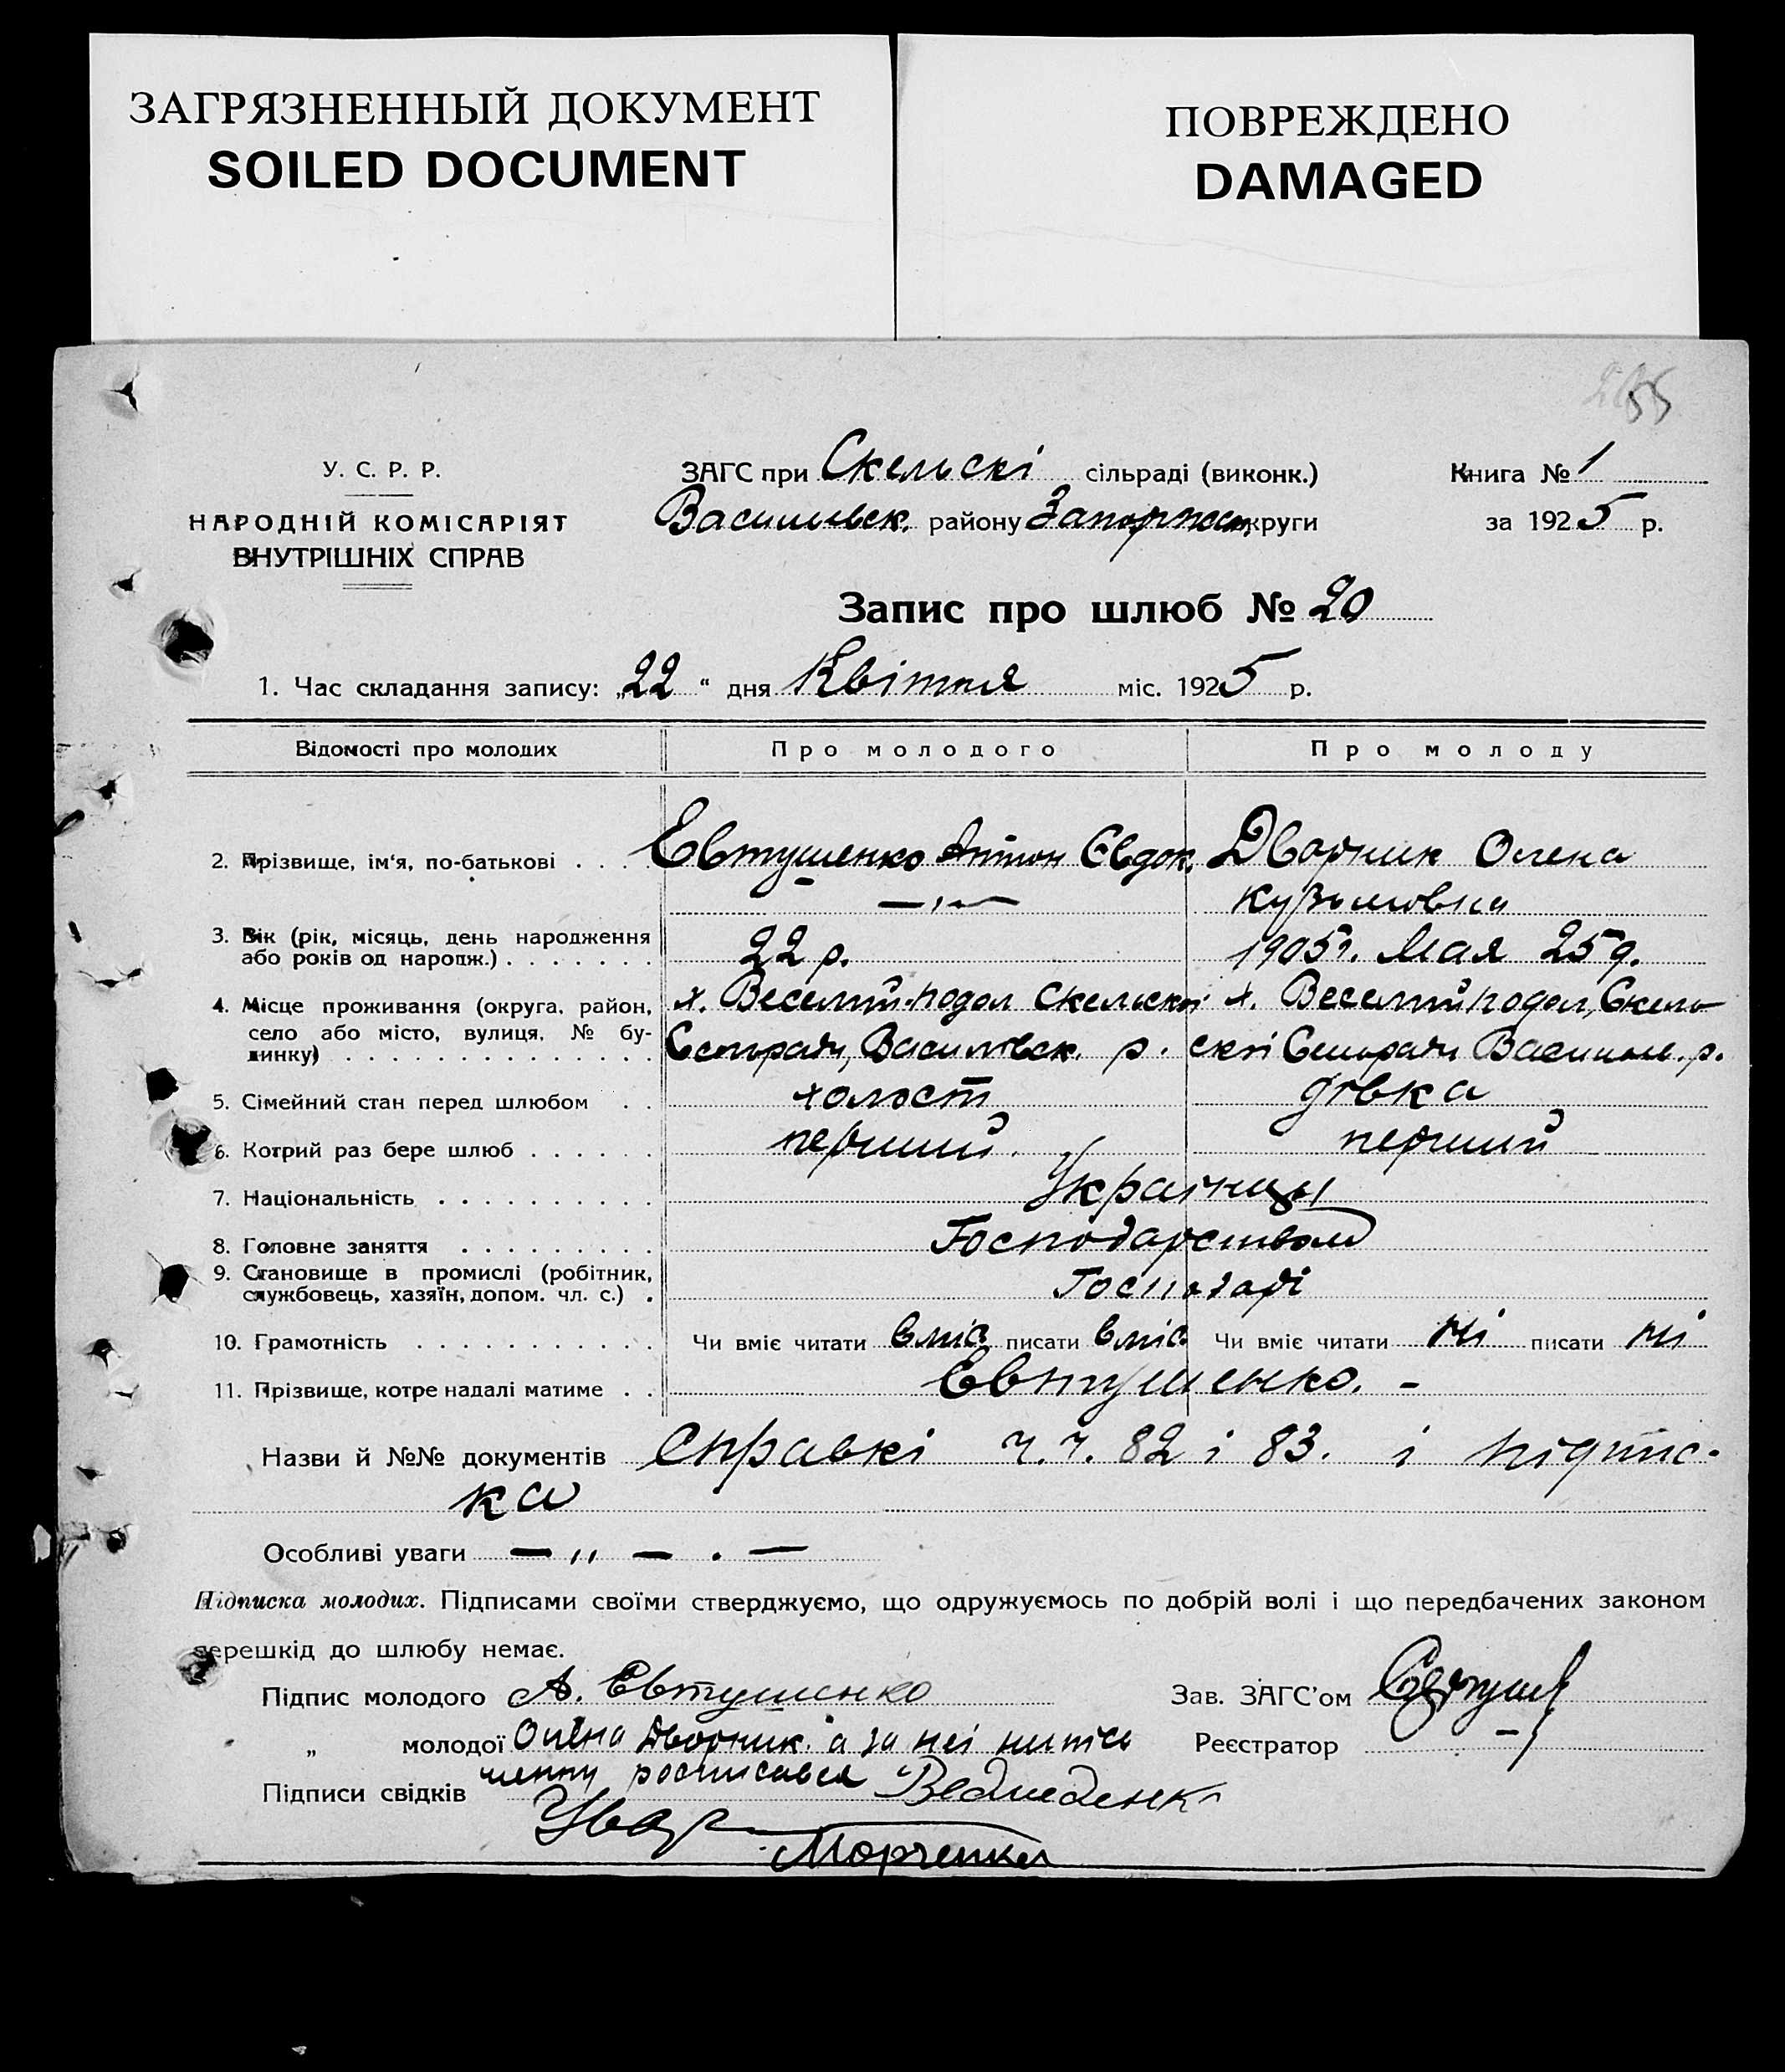 ЗАГРЯЗНЕННЫЙ ДОКУМЕНТ
SOILED DOCUMENT
ПОВРЕЖДЕНО
DAMAGED
55
У. С. Р. Р.
НАРОДНІЙ КОМІСАРІЯТ
ВНУТРІШНІХ СПРАВ
ЗАГС при Скельскі сільраді (виконк.)
Васильвск. району Запорж округи
Книга № 1
за 1925 р.
Запис про шлюб № 20
1. Час складання запису: „22“ дня Квітня міс. 1925 р.
Відомості про молодих Про молодого Про молоду
2. Прізвище, ім'я, по-батькові . . . . Евтушенко Антон Євдок. Дворник Олена
— „ — Кузьмовна
3. Вік (рік, місяць, день народження
або років од народж.) . . . . . . . 22 р. 1905 г. Мая 25 д.
4. Місце проживання (округа, район, х. Веселий-подол Скельскої х. Веселийподол, Скель
село або місто, вулиця, № бу-
динку) . . . . . . . . . . . . . . Сельради, Василівск. р. скої Сельради Васильв. р.
5. Сімейний стан перед шлюбом . . холост дівка
6. Котрий раз бере шлюб . . . . . . перший. перший
7. Національність . . . . . . . . . . Українцы
8. Головне заняття . . . . . . . . . Господарством
9. Становище в промислі (робітник,
службовець, хазяїн, допом. чл. с.) . Господарі
10. Грамотність . . . . . . . . . . . Чи вміє читати вміє писати вміє Чи вміє читати ні писати ні
11. Прізвище, котре надалі матиме . . Євтушенко. -
Назви й №№ документів Справкі ч.ч. 82 і 83. і підпис-
ка
Особливі уваги — „ — . —
Підписка молодих. Підписами своїми стверджуємо, що одружуємось по добрій волі і що передбачених законом
перешкід до шлюбу немає.
Підпис молодого А. Евтушенко Зав. ЗАГС'ом
„ молодої Олена Дворник а за неї Реєстратор
росписався
Підписи свідків Ведмеденко
Марченко